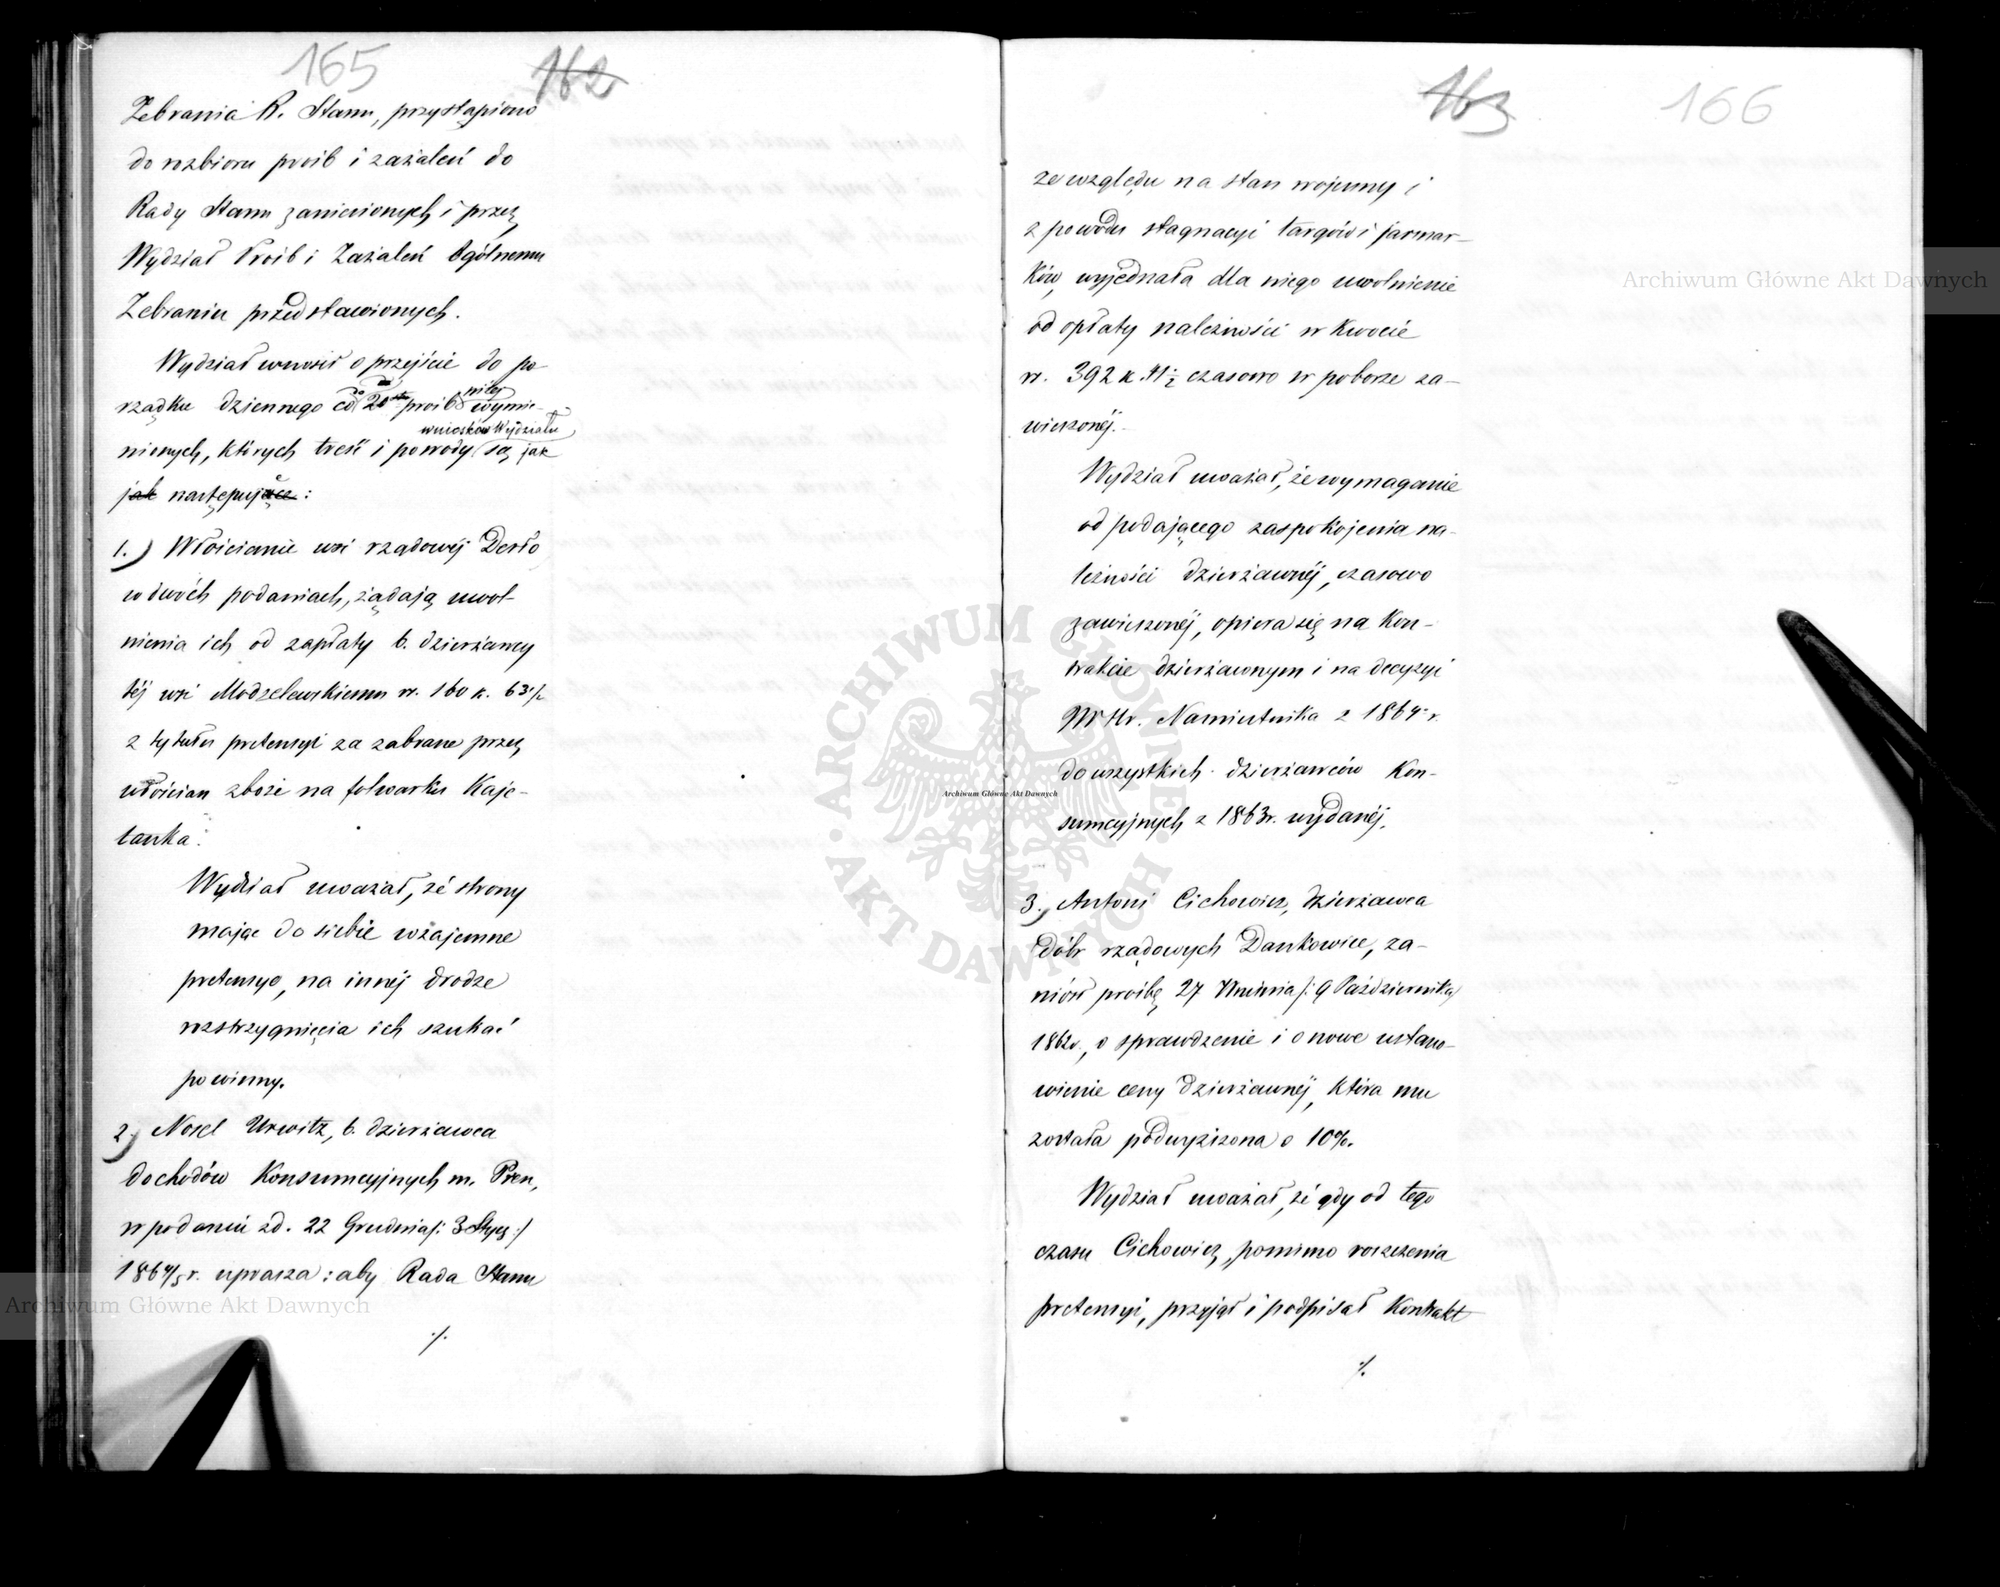 165 162
Zebrania R. Stanu, przystąpiono
do rozbioru prośb i zażaleń do
Rady Stanu zaniesionych i przez
Wydział Prośb i Zażaleń Ogólnemu
Zebraniu przedstawionych.
Wydział wnosił o przejście do po-
rządku dziennego co do 20 prośb niżej wymie-
nionych, których treść i powody wniosków Wydziału są jak
jak następujące:
1.) Włościanie wsi rządowéj Derło
w dwóch podaniach, żądają uwol-
nienia ich od zapłaty b. dzierżawcy
téj wsi Modzelewskiemu rs. 160 k. 63 1/2
z tytułu pretensyi za zabrane przez
włościan zboże na folwarku Kaje-
tanka.
Wydział uważał, że strony
mając do siebie wzajemne
pretensye, na innéj drodze
rozstrzygnięcia ich szukać
powinny.
2.) Nosel Urwitz, b. dzierżawca
dochodów Konsumcyjnych m. Pren,
w podaniu z d. 22 Grudnia /: 3 Stycz :/
1864/5 r. uprasza: aby Rada Stanu
./.
163 166
ze względu na stan wojenny i
z powodu stagnacyi targów i jarmar-
ków, wyjednała dla niego uwolnienie
od opłaty należności w kwocie
rs. 392 k. 41 1/2 czasowo w poborze za-
wieszonéj.
Wydział uważał, że wymaganie
od podającego zaspokojenia na-
leżności dzierżawnéj, czasowo
zawieszonéj, opiera się na Kon-
trakcie dzierżawnym i na decyzyi
JW Hr. Namiestnika z 1864 r.
do wszystkich dzierżawców Kon-
sumcyjnych z 1863 r. wydanéj.
3.) Antoni Cichowicz, dzierżawca
dóbr rządowych Dankowice, za-
niósł prośbę 27 Września /: 9 Października
1862 r., o sprawdzenie i o nowe ustano-
wienie ceny dzierżawnéj, która mu
została podwyższona o 10%.
Wydział uważał, że gdy od tego
czasu Cichowicz, pomimo roszczenia
pretensyi, przyjął i podpisał Kontrakt
./.
Archiwum Główne Akt Dawnych
ARCHIWUM GŁÓWNE · AKT DAWNYCH ·
Archiwum Główne Akt Dawnych
Archiwum Główne Akt Dawnych